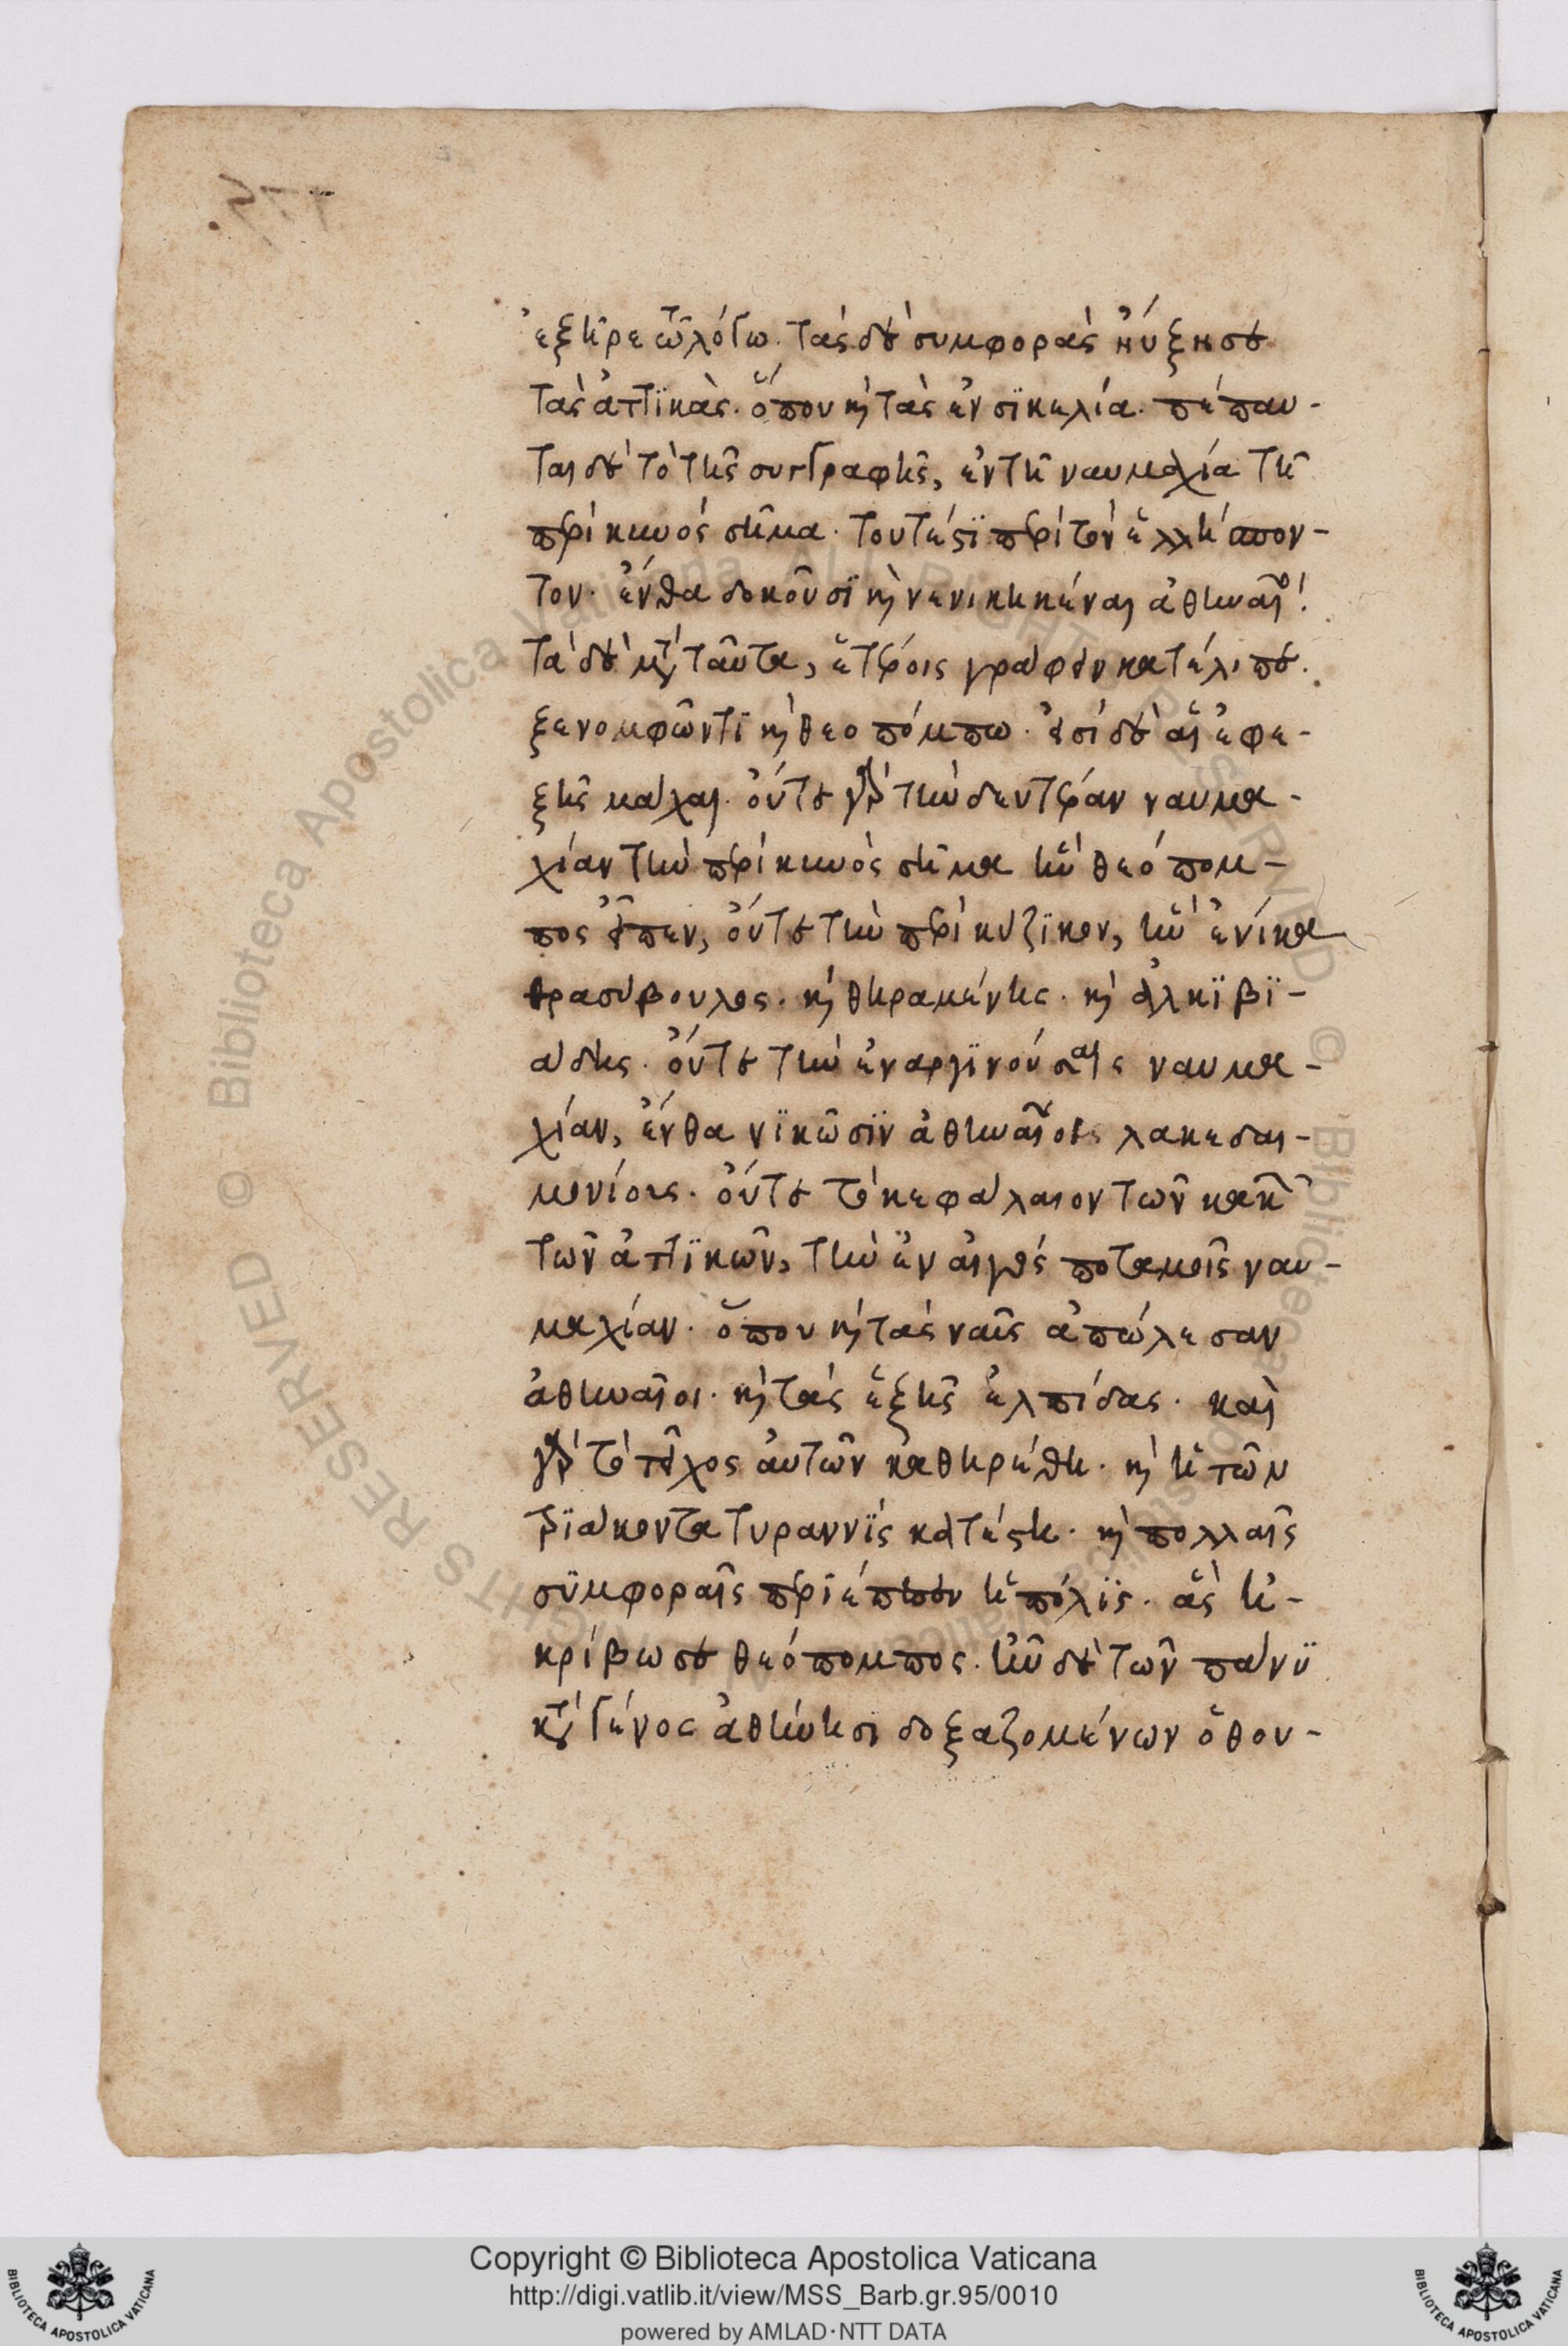 ἐξῆρε τῶ λόγω. τὰς δὲ συμφορὰς ηὔξησε
τὰς ἀττϊκὰς. ὅπου κὴ τὰς ἐν σϊκελία. πέπαυ-
ται δὲ τὸ τῆς συγγραφῆς, ἐν τῆ ναυμαχία τῆ
περὶ κυνὸς σῆμα. τουτέστϊ περὶ τὸν ἑλλήσπον-
τον. ἔνθα δοκοῦσϊ κὴ νενικηκέναι ἀθηναῖοι.
τὰ δὲ μετὰ ταῦτα, ἑτέροις γράφειν κατέλιπε.
ξενοφῶντϊ κὴ θεοπόμπω. εἰσὶ δὲ αἱ ἐφε-
ξῆς μάχαι. οὔτε γὰρ τὴν δευτέραν ναυμα-
χίαν τὴν περὶ κυνὸς σῆμα ἣν θεόπομ-
πος εἶπεν, οὔτε τὴν περὶ κύζϊκον, ἣν ἐνίκα
θρασύβουλος. κὴ θηραμένης. κὴ ἀλκϊβϊ-
άδης. οὔτε τὴν ἐν ἀργϊνούσαις ναυμα-
χίαν, ἔνθα νϊκῶσϊν ἀθηναῖοι λακεδαι-
μονίους. οὔτε τὸ κεφάλαιον τῶν κακῶν
τῶν ἀττϊκῶν, τὴν ἐν αἰγὸς ποταμοῖς ναυ-
μαχίαν. ὅπου κὴ τὰς ναῦς ἀπώλεσαν
ἀθηναῖοι. κὴ τὰς ἑξῆς ἐλπίδας. καὶ
γὰρ τὸ τεῖχος αὐτῶν καθηρέθη. κὴ ἡ τῶν
τρϊάκοντα τυραννὶς κατέστη. κὴ πολλαῖς
σϋμφοραῖς περϊέπεσεν ἡ πόλϊς. ἃς ἠ-
κρίβωσε θεόπομπος. ἦν δὲ τῶν πάνϋ
κατὰ γένος ἀθήνησι δοξαζομένων ὁ θου-
Copyright © Biblioteca Apostolica Vaticana
http://digi.vatlib.it/view/MSS_Barb.gr.95/0010
powered by AMLAD·NTT DATA